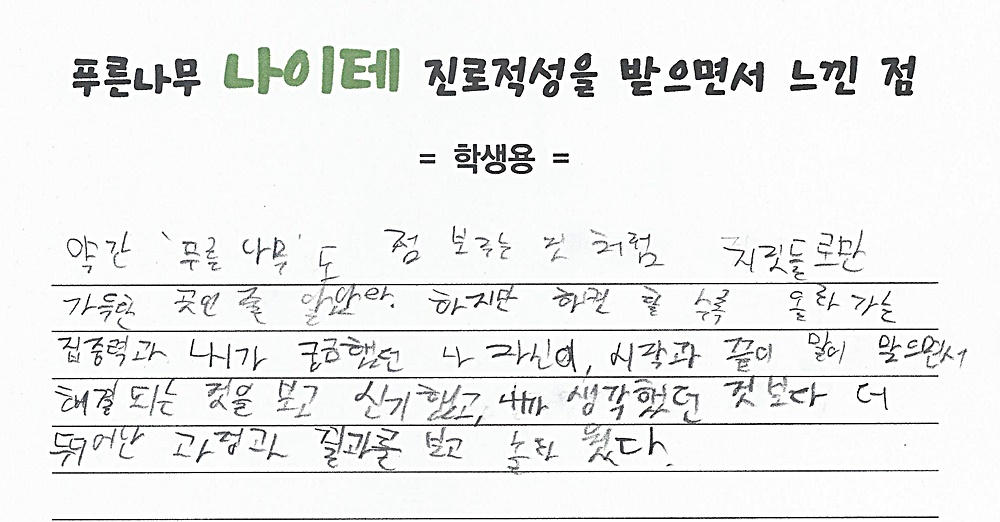 푸른나무 나이테 진로적성을 받으면서 느낀 점
= 학생용 =
약간 '푸른 나무' 도 점 보구는 것 처럼 거짓들로만
가득한 곳인 줄 알았다. 하지만 하면 할 수록 올라 가는
집중력과 내가 궁금했던 나 자신에, 시작과 끝이 많이
해결 되는 것을 보고 신기했고, 내가 생각했던 것 보다 더
뛰어난 과정과 결과를 보고 놀라 웠다.